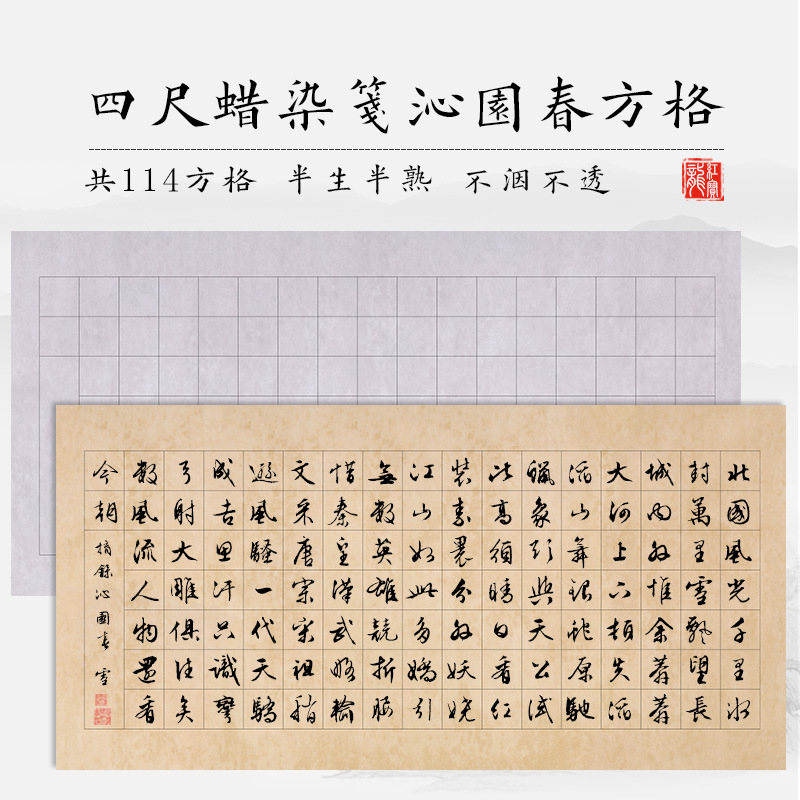 四尺蜡染箋沁園春方格
共114方格 半生半熟 不洇不透
紅寶龍
北國風光千里冰
封萬里雪飄望長
城內外惟余莽莽
大河上下頓失滔
滔山舞銀蛇原馳
蠟象欲與天公試
比高須晴日看紅
裝素裹分外妖嬈
江山如此多嬌引
無數英雄競折腰
惜秦皇漢武略輸
文采唐宗宋祖稍
遜風騷一代天驕
成吉思汗只識彎
弓射大雕俱往矣
數風流人物還看
今朝 摘錄沁園春 雪